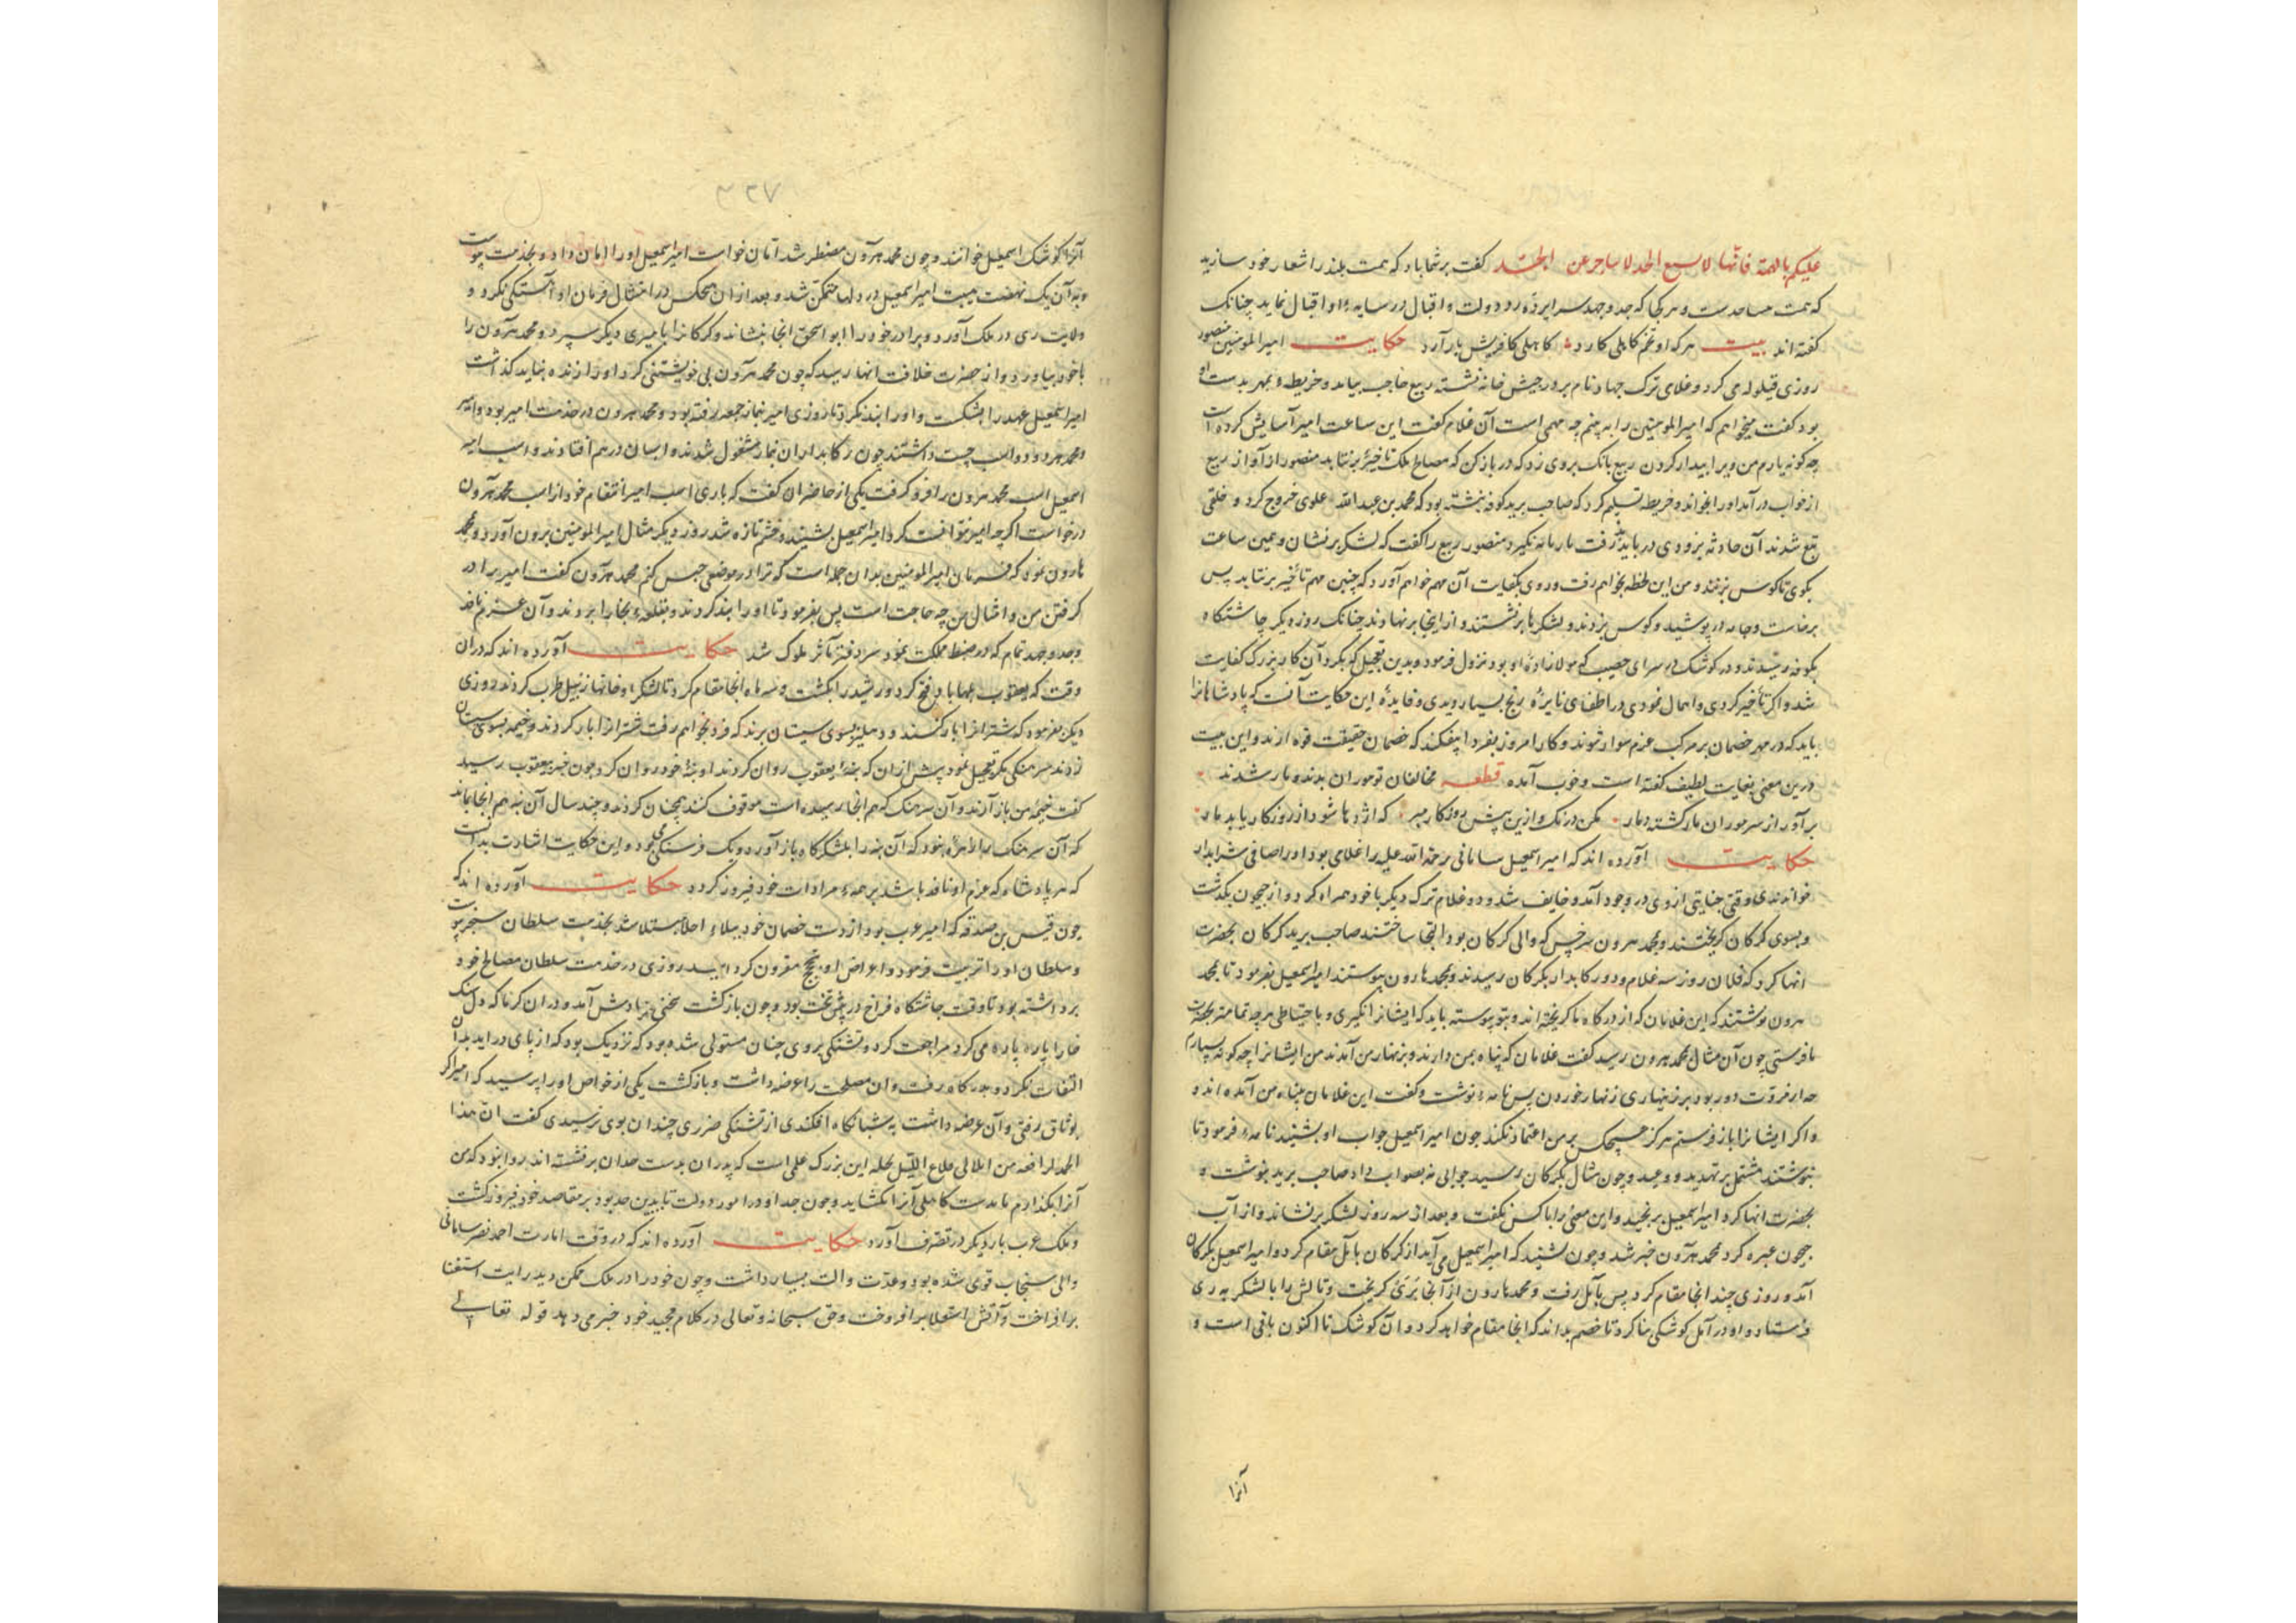 علیکم بالهمة فانها لا تسبع الجد لا ساجر عن الجد کفت بر شما باد که همت بلند را شعار خود سازید
که همت مساعدست و هر کجا که جد و جهد سرابرده زد دولت و اقبال در سایهٔ او اقبال نماید چنانک
کفته اند بیت هر که او تخم کاهلی کارد کاهلی کافریش بار آرد حکایت امیر المومنین منصور
روزی قیلوله می کرد و غلامی ترک جهاد نام بر در خیش خانه نشسته ربیع حاجب بیامد و خریطه و بمهر بدست او
بود کفت میخواهم که امیر المومنین را به بینم چه مهمی است آن غلام کفت این ساعت امیر آسایش کرده است
چه کونه یارم من ویرا بیدار کردن ربیع بانک بروی زد که در باز کن که مصالح ملک تاخیر برنتابد منصور از آواز ربیع
از خواب درآمد او را بخواند و خریطه تسلیم کرد که صاحب برید کوفه نبشته بود که محمد بن عبد الله علوی خروج کرد و خلقی
تبع شدند آن حادثه بزودی در باید یافت تا رمانه نکیرد منصور ربیع را کفت که لشکر برنشان و همین ساعت
بکوی تا کوس بزنند و من این لحظه بخواهم رفت و روی بکفایت آن مهم خواهم آورد که چنین مهم تأخیر برنتابد پس
برخاست و جامه در پوشید و کوس بزدند و لشکرها برنشستند و از اینجا برنهادند چنانک روز دیکر چاشتکاه
بکوفه رسیدند و در کوشک سرای خصیب که مولازادهٔ او بود نزول فرمود و بدین تعجیل که بکرد آن کار بزرک کفایت
شد و اکر تأخیر کردی و اهمال نمودی در اطفای نایره رنج بسیار دیدی و فایدهٔ این حکایت آنست که پادشاهانرا
باید که در مهر خصمان بر مرکب عزم سوار شوند و کار امروز بفردا نیفکند که خصمان حقیقت قوه ازند و این بیت
درین معنی بغایت لطیف کفته است و خوب آمده قطعه مخالفان تو موران بدند و مار شدند
برآور از سر موران مار کشته دمار مکن درنک و ازین بیش روزکار مبر که اژدها شود از روزکار یابد مار
حکایت آورده اند که امیر اسمعیل سامانی رحمة الله علیه را غلامی بود او را صافی شرابدار
خواندندی وقتی جنایتی ازوی در وجود آمد و خایف شد و دو غلام ترک دیکر با خود همراه کرد و از جیحون بکذشت
و بسوی کرکان کریختند و محمد هرون سرخس که والی کرکان بود التجا ساختند صاحب برید کرکان بحضرت
انها کرد که فلان روز سه غلام و دو رکابدار بکرکان رسیدند و بمحمد هارون پیوستند امیر اسمعیل بفرمود تا بمحمد
هرون نوشتند که این غلامان که از درکاه ما کریخته اند و بتو پیوسته باید که ایشانرا انکیری و با حتیاطی هر چه تمامتر بحضرت
ما فرستی چون آن مثال بمحمد هرون رسید کفت غلامان که پناه بمن دارند و بزنهار من آمدند من ایشانرا چه کونه سپارم
چه از مروت دور بود بر زنهاری زنهار خوردن پس نامهٔ نوشت و کفت این غلامان بپناه من آمده اند و
و اکر ایشانرا باز فرستم هرکز هیچکس بر من اعتماد نکند چون امیر اسمعیل جواب او بشنید نامه فرمود تا
بنوشتند مشتمل بر تهدید و وعید و چون مثال بکرکان رسید جوابی نه بصواب داد صاحب برید بنوشت و
بحضرت انها کرد امیر اسمعیل برنجید و این معنی را با کس نکفت و بعد از سه روز لشکر برنشاند و از آب
جیحون عبره کرد محمد هرون خبر شد و چون بشنید که امیر اسمعیل می آید از کرکان بآمل مقام کرد و امیر اسمعیل بکرکان
آمد و روزی چند انجا مقام کرد پس بآمل رفت و محمد هارون از آنجا بری کریخت و تا لش را با لشکر به ری
فرستاد و او در آمل کوشکی بنا کرد تا خصم بداند که انجا مقام خواهد کرد و آن کوشک تا اکنون باقی است و
آنرا
۳۲۷
آنرا کوشک اسمعیل خوانند و چون محمد هرون مضطر شد امان خواست امیر اسمعیل او را امان داد و بخدمت پیوست
و به آن یک نهضت هیبت امیر اسمعیل در دلها متمکن شد و بعد از ان هیچکس در امتثال فرمان او آهستکی نکرد و
ولایت ری در ملک آورد و برادر خود را ابو اسحق انجا بنشاند و کرکانرا بامیری دیکر سپرد و محمد هرون را
با خود بیاورد و از حضرت خلافت انها رسید که چون محمد هرون بی خویشتنی کرد او را زنده نباید کذاشت
امیر اسمعیل عهد را بشکست و او را بند نکرد تا روزی امیر بنماز جمعه رفته بود و محمد هرون در خدمت امیر بود و امیر
و محمد هر دو دو اسب چست داشتند چون رکابداران بنماز مشغول شدند و اسبان در هم افتادند و اسب امیر
اسمعیل اسب محمد هرون را فرو کرفت یکی از حاضران کفت که باری اسب امیر انتقام خود از اسب محمد هرون
درخواست اکر چه امیر توافت کرد امیر اسمعیل بشنید و خشم تازه شد روز دیکر مثال امیر المومنین برون آورد و محمد
هارون نمود که فرمان امیر المومنین بدان جمله است که ترا در موضعی حبس کنم محمد هرون کفت امیر برادر
کرفتن من و امثال من چه حاجت است پس بفرمود تا او را بند کردند و بقلعهٔ بخارا بردند و آن عزم نافذ
و جد و جهد تمام که در ضبط مملکت نمود سردفتر مآثر ملوک شد حکایت آورده اند که دران
وقت که یعقوب فتح کرد و رشید را بکشت و سه ماه انجا مقام کرد تا لشکر او خانها زنبیل خراب کردند روزی
دیکر بفرمود که شترانرا بار کنند و دهلیز بسوی سیستان برند که فردا بخواهم رفت شترانرا بار کردند و خیمه بسوی سیستان
زدند سرهنکی بکر تعجیل نمود پیش از ان که بنهٔ یعقوب روان کردند او بنهٔ خود روان کرد چون خبر بیعقوب رسید
کفت خیمهٔ من باز آرند و آن سرهنک که هم انجا رسیده است موقوف کنند همچنان کردند و چند سال آن بنه هم انجا بماند
که آن سرهنک را زهره نبود که آن بنه را بلشکرکاه باز آورد و یک فرسنکی بود و این حکایت اشارت بدانست
که هر پادشاه که عزم او نافذ باشد بر همهٔ مرادات خود فیروز کردد حکایت آورده اند که
چون قیس بن صدقه که امیر عرب بود از دست خصمان خود ببلاء اجلا مبتلا شد بخدمت سلطان سنجر پیوست
و سلطان او را تربیت فرمود و اغراض او بنجح مقرون کردانید روزی در خدمت سلطان مصالح خود
برداشته بود تا وقت چاشتکاه فراخ در پیش تخت بود و چون بازکشت سخنی یادش آمد و دران کرما که دل سنک
خارا پاره پاره می کرد مراجعت کرد و تشنکی بروی چنان مستولی شده بود که نزدیک بود که از پای در اید بدان
التفات نکرد و بدرکاه رفت و ان مصلحت را عرضه داشت و بازکشت یکی از خواص او را پرسید که امیر اکر
بوثاق رفتی و آن عرضه داشت به شبانکاه افکندی از تشنکی ضرری چندان بوی نرسیدی کفت ان هذا
الجد لرافعه من ایلالی طلاع اللیل بحله این بزرک علمی است که پدران بدست جدان برفشته اند روا نبود که من
آنرا بکذارم تا بدست کاهلی آنرا بکشاید و چون جد او در امور دولت تا بدین حد بود بر مقاصد خود فیروز کشت
و ملک عرب بار دیکر در تصرف آورد حکایت آورده اند که در وقت امارت احمد نصر سامانی
والی سنجاب قوی شده بود و عدت و الت بسیار داشت و چون خود را در ملک ممکن دید رایت استغنا
برافراخت و آتش استعلا برافروخت و حق سبحانه و تعالی در کلام مجید خود خبر می دهد قوله تعالی